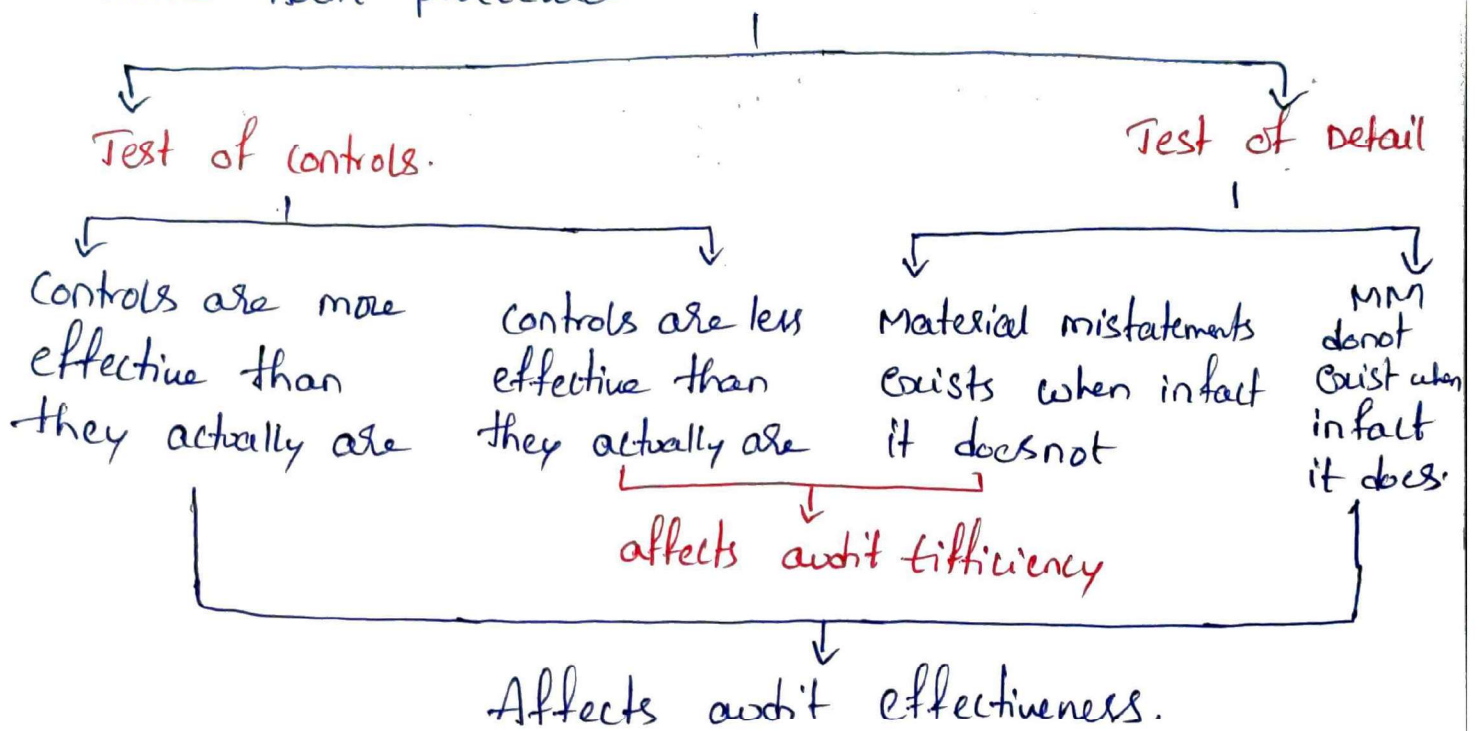 Test of controls.
Test of Detail
Controls are more
effective than
they actually are
controls are less
effective than
they actually are
Material mistatements
exists when infact
it doesnot
MM
donot
exist when
infact
it does.
affects audit efficiency
Affects audit effectiveness.